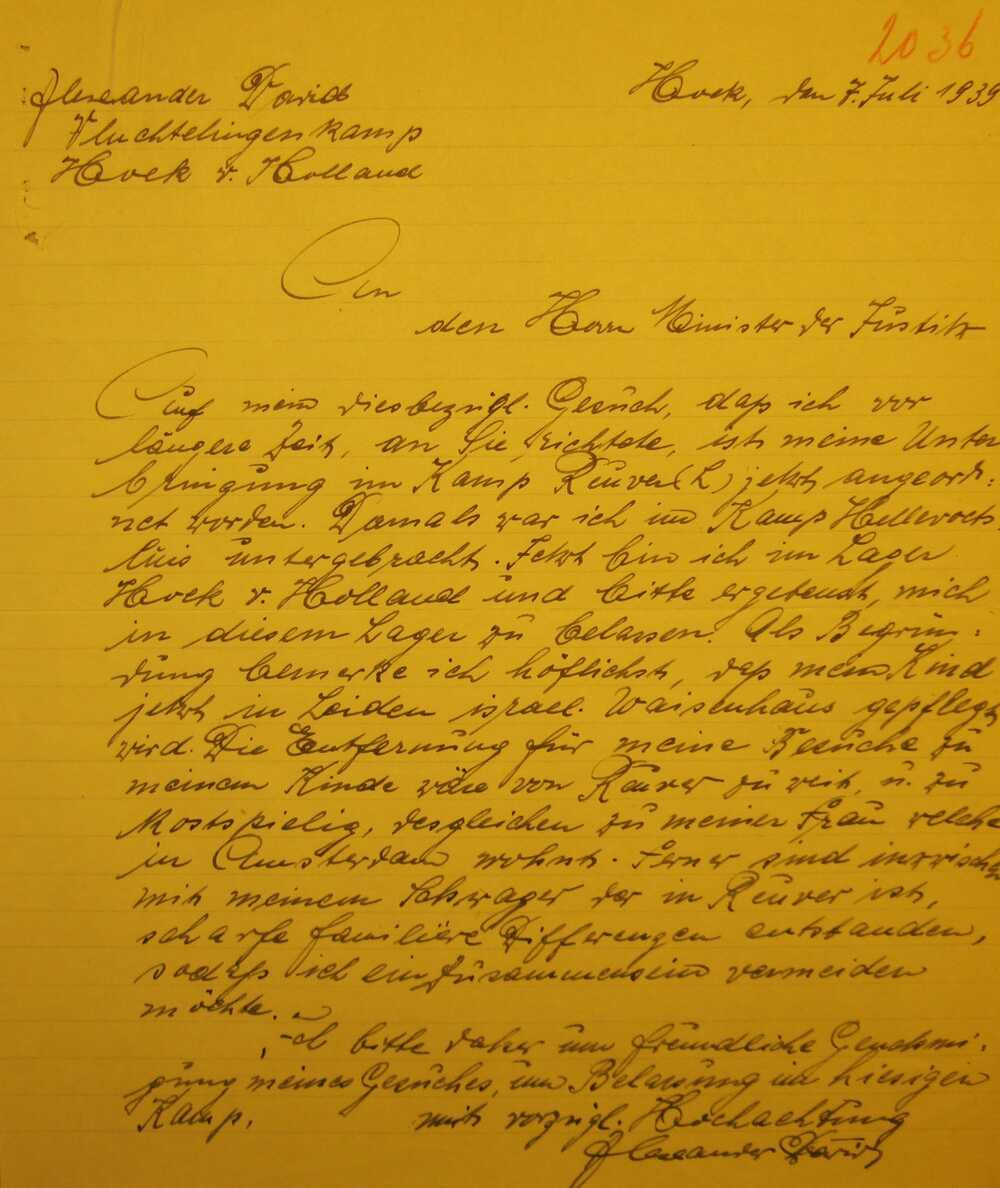 2036
Alexander David
Hoek, den 7. Juli 1939
Vluchtelingenkamp
Hoek v. Holland
An
den Herrn Minister der Justitz
Auf mein diesbezügl. Gesuch, daß ich vor
längere Zeit, an Sie richtete, ist meine Unter
bringung im Kamp Reuver (L) jetzt angeord:
net worden. Damals war ich im Kamp Hellevoets
luis untergebracht. Jetzt bin ich im Lager
Hoek v. Holland und bitte ergebenst, mich
in diesem Lager zu belassen. Als Begrün:
dung bemerke ich höflichst, daß mein Kind
jetzt in Leiden israel. Waisenhaus gepflegt
wird. Die Entfernung für meine Besuche zu
meinem Kinde wäre von Reuver zu weit, u. zu
kostspielig, desgleichen zu meiner Frau welche
in Amsterdam wohnt. Ferner sind inzwischen
mit meinem Schwager der in Reuver ist,
scharfe familiäre Differenzen entstanden,
sodaß ich ein Zusammensein vermeiden
möchte.
Ich bitte daher um freundliche Genehmi:
gung meines Gesuches, um Belassung im hiesigen
Kamp. mit vorzügl. Hochachtung
Alexander David